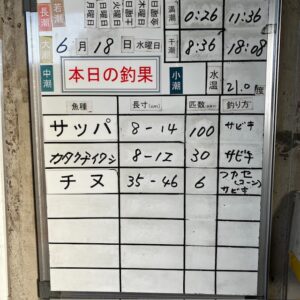 長潮 若潮 月曜日 火曜日 水曜日 木曜日 金曜日 満潮 0:26 11:36
大潮 6月18日 水曜日 干潮 8:36 18:08
中潮 本日の釣果 小潮 水温 21.0度
魚種 長寸(cm) 匹数(cm) 釣り方
サッパ 8-14 100 サビキ
カタクチイワシ 8-12 30 サビキ
チヌ 35-46 6 フカセ
(コーン)
サビキ